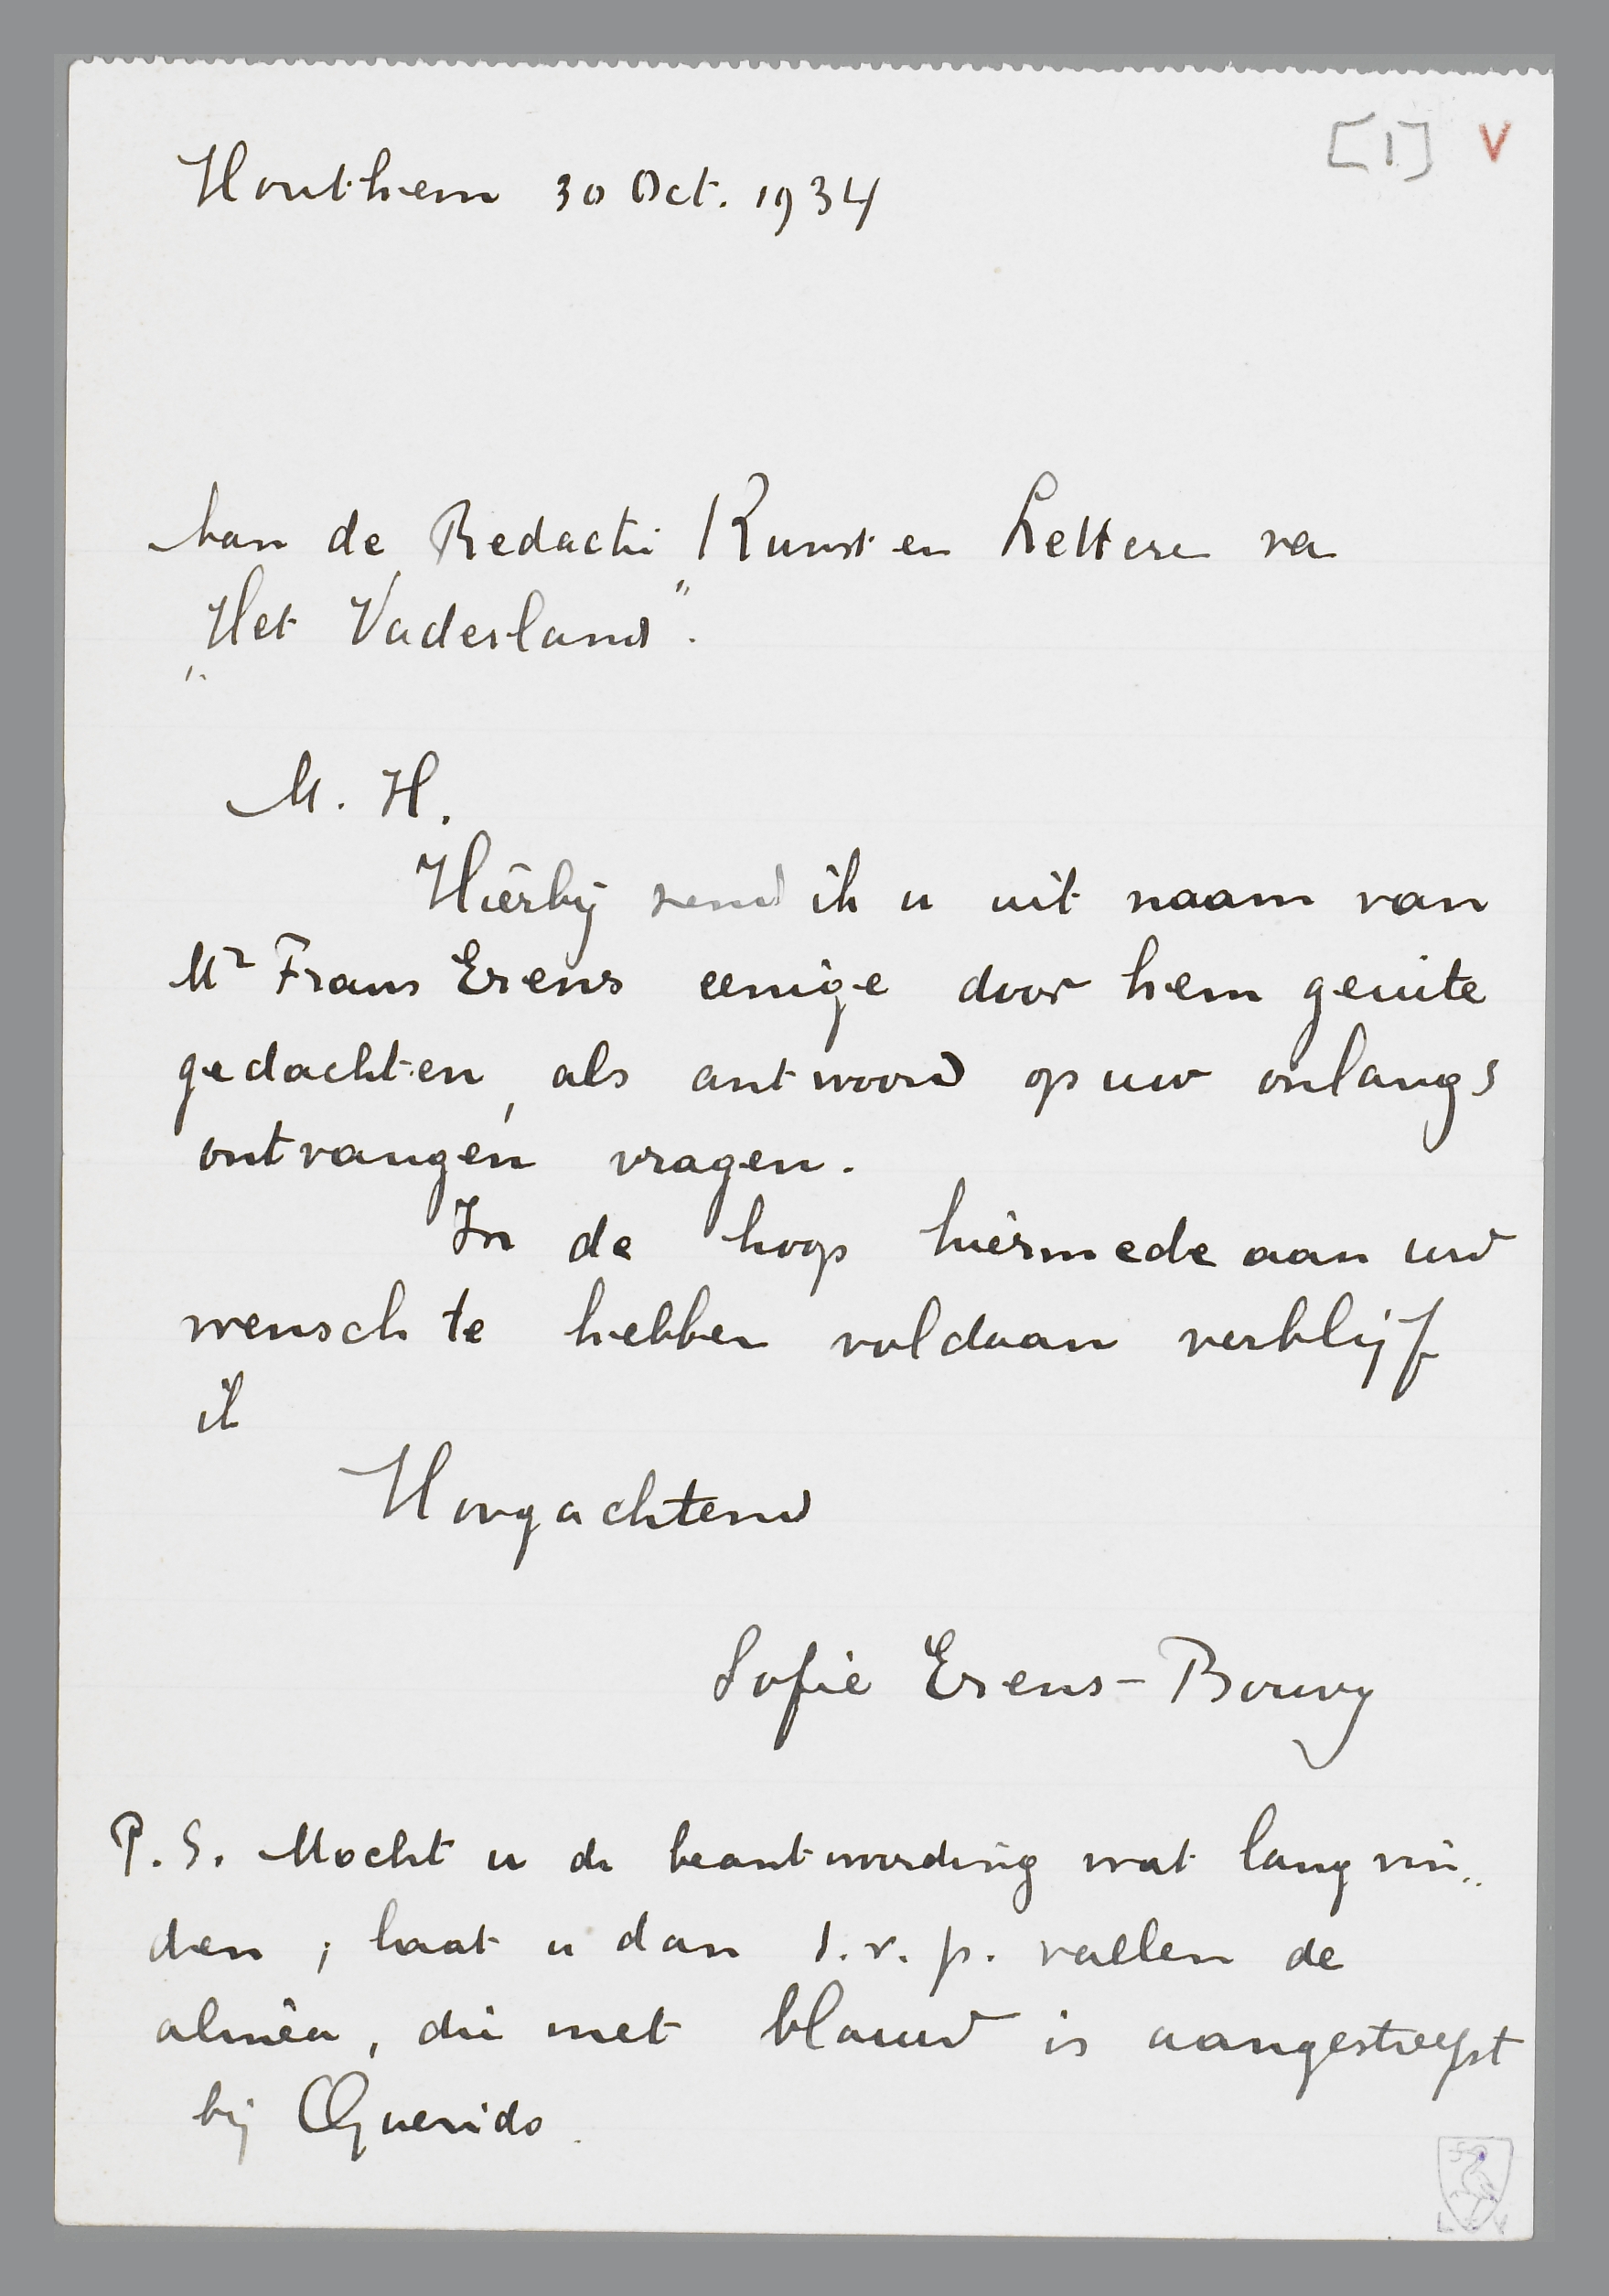 [1] V
Houthem 30 Oct. 1934
Aan de Redactie Kunst en Letteren van
„Het Vaderland".
M. H.
Hierbij zend ik u uit naam van
Mr Frans Erens eenige door hem geuite
gedachten, als antwoord op uw onlangs
ontvangen vragen.
In de hoop hiermede aan uw
wensch te hebben voldaan verblijf
ik
Hoogachtend
Sofie Erens-Bouvy
P.S. Mocht u de beantwoording wat lang vin„
den, laat u dan s.v.p. vallen de
alinéa, die met blauw is aangestreept
bij Querido.